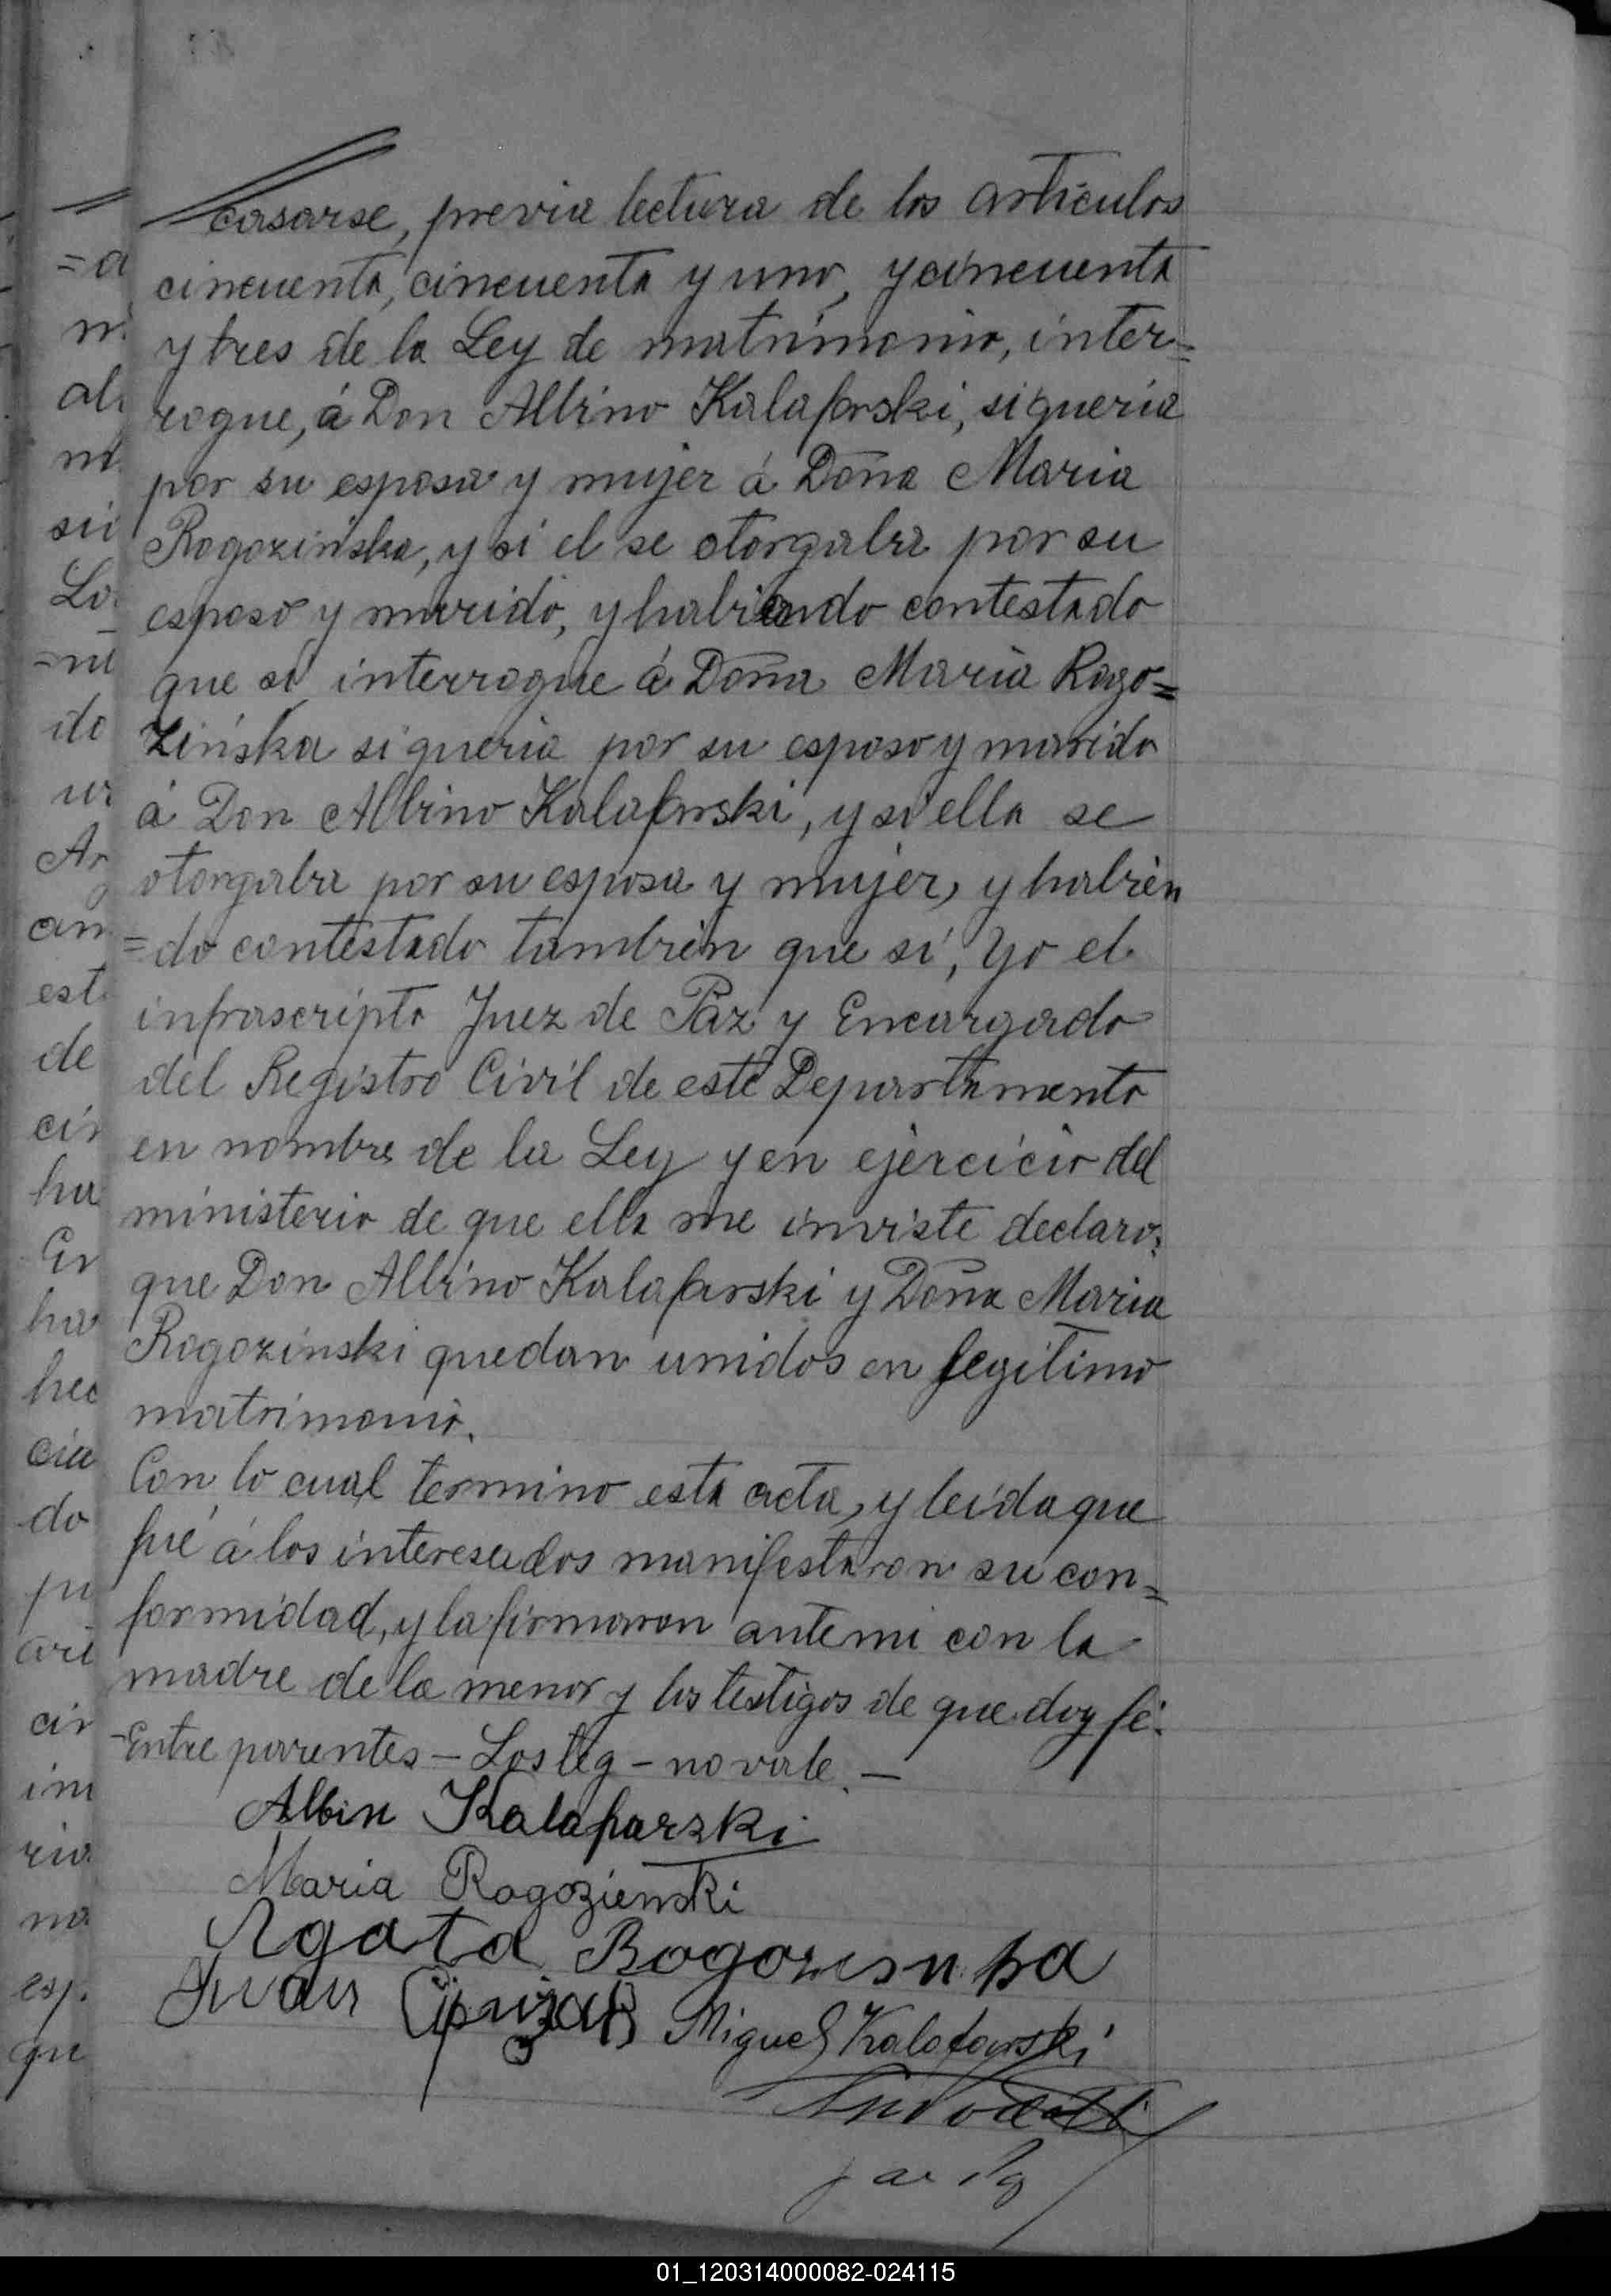 casarse, previa lectura de los articulos
cincuenta, cincuenta y uno, y cincuenta
y tres de la Ley de matrimonio, inter=
rogue, á Don Albino Kalafarski, si queria
por su esposa y mujer á Doña Maria
Rogozińska, y si el se otorgaba por su
esposo y marido, y habiendo contestado
que si interrogue á Doña Maria Rogo=
zińska si queria por su esposo y marido
á Don Albino Kalafarski, y si ella se
otorgaba por su esposa y mujer, y habien
=do contestado tambien que si, Yo el
infrascripto Juez de Paz y Encargado
del Registro Civil de este Departamento
en nombre de la Ley y en ejercicio del
ministerio de que ella me inviste declaro:
que Don Albino Kalafarski y Doña Maria
Rogozinski quedan unidos en legitimo
matrimonio.
Con lo cual termino esta acta, y leida que
fué á los interesados manifestaron su con=
formidad, y la firmaron antemi con la
madre de la menor y los testigos de que doy fé.
-Entre parentes - Los teg - no vale. -
Albin Kalafarzki
Maria Rogozienski
Agata
Juan
Miguel Kalafarski
01_120314000082-024115